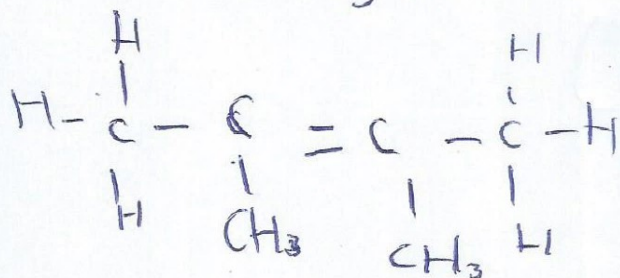 H H
H - C - C = C - C - H
H CH₃ CH₃ H